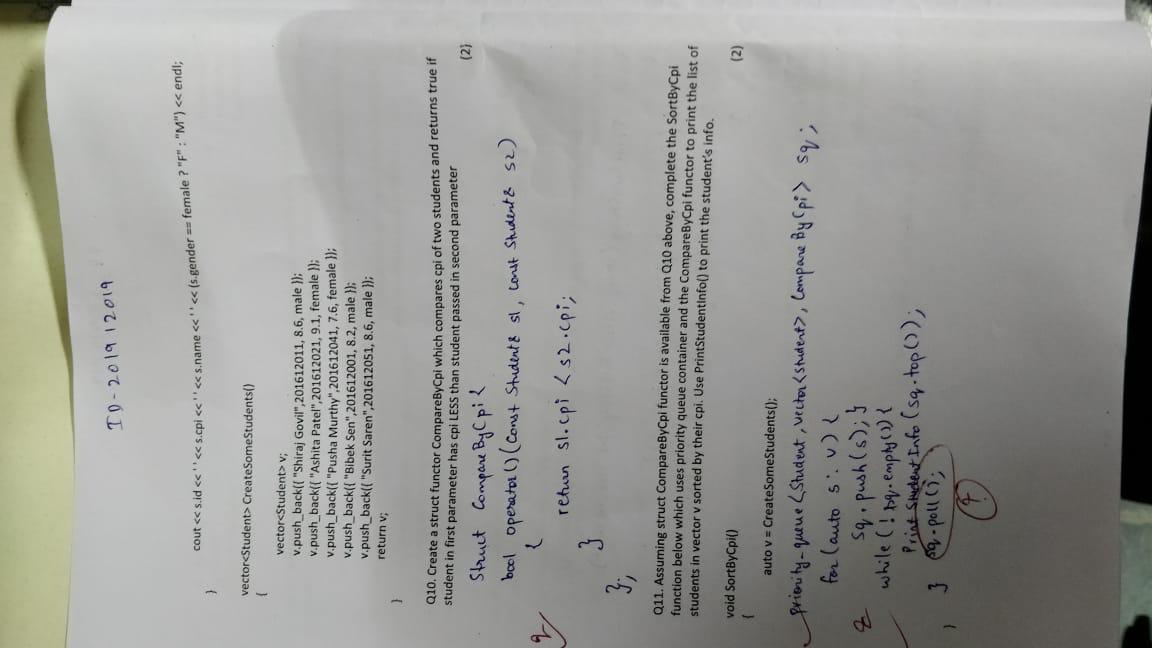 ID-201912019
cout << s.id << ' ' << s.cpi << ' ' << s.name << ' ' << (s.gender == female ? "F" : "M") << endl;
}
vector<Student> CreateSomeStudents()
{
vector<Student> v;
v.push_back({ "Shiraj Govil",201612011, 8.6, male });
v.push_back({ "Ashita Patel",201612021, 9.1, female });
v.push_back({ "Pusha Murthy",201612041, 7.6, female });
v.push_back({ "Bibek Sen",201612001, 8.2, male });
v.push_back({ "Surit Saren",201612051, 8.6, male });
return v;
}
Q10. Create a struct functor CompareByCpi which compares cpi of two students and returns true if
student in first parameter has cpi LESS than student passed in second parameter
(2)
Struct CompareByCpi {
bool operator()(Const Student& s1, const Student& s2)
{
2
return s1.cpi < s2.cpi;
}
};
Q11. Assuming struct CompareByCpi functor is available from Q10 above, complete the SortByCpi
function below which uses priority queue container and the CompareByCpi functor to print the list of
students in vector v sorted by their cpi. Use PrintStudentInfo() to print the student's info.
(2)
void SortByCpi()
{
auto v = CreateSomeStudents();
priority_queue <Student, vector<student>, CompareByCpi> sq;
for (auto s : v) {
sq.push(s); }
2
while (! pq.empty()) {
Print Student Info (sq.top());
} sq.poll();
}